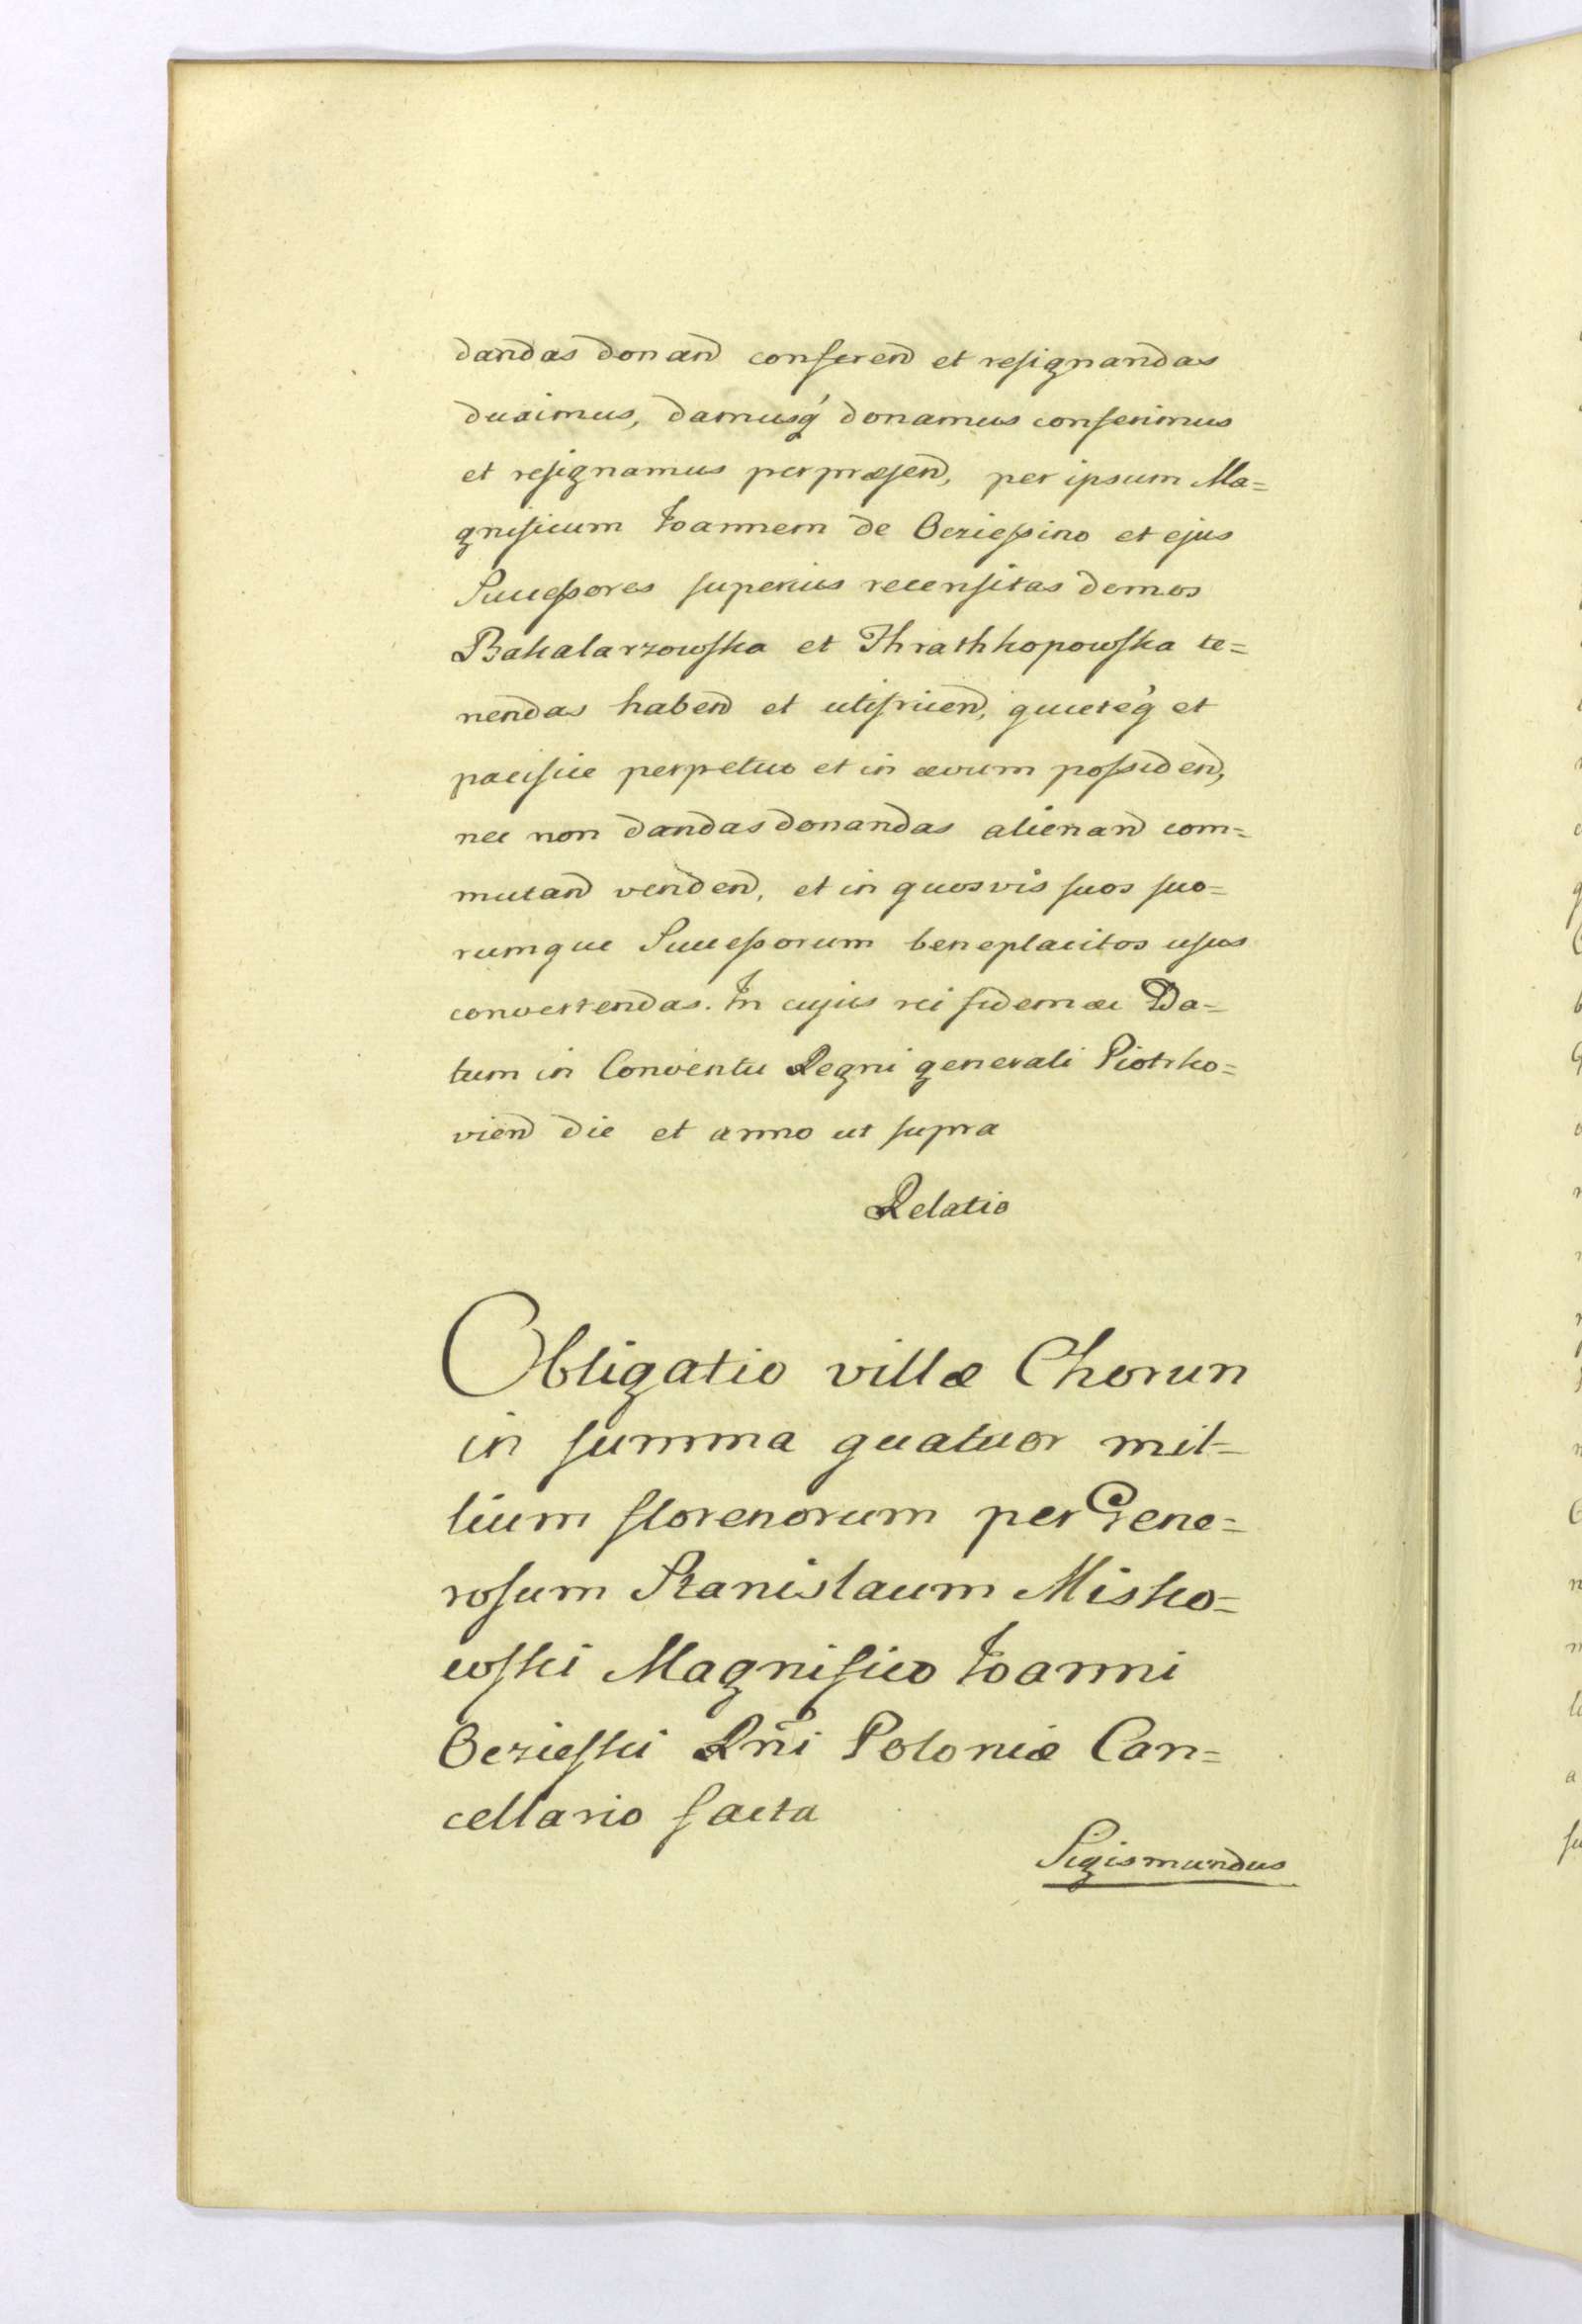 dandas donand conferend et resignandas
duximus, damusq́ donamus conferimus
et resignamus per præsend, per ipsum Ma=
gnificum Joannem de Oczieszino et ejus
Successores superius recensitas domos
Bakalarzowska et Thrathkopowska te=
nendas habend et utifruend, quieteq́ et
pacifice perpetuo et in ævum possidend,
nec non dandas donandas alienand com=
mutand vendend, et in quosvis suos suo=
rumque Successorum beneplacitos usus
convertendas. In cujus rei fidem &c Da=
tum in Conventu Regni generali Piotrko=
viend die et anno ut supra
Relatio
Obligatio villæ Chorun
in summa quatuor mil=
lium florenorum per Gene=
rosum Stanislaum Misko=
wski Magnifico Joanni
Oczieski Rñi Poloniæ Can=
cellario facta
Sigismundus